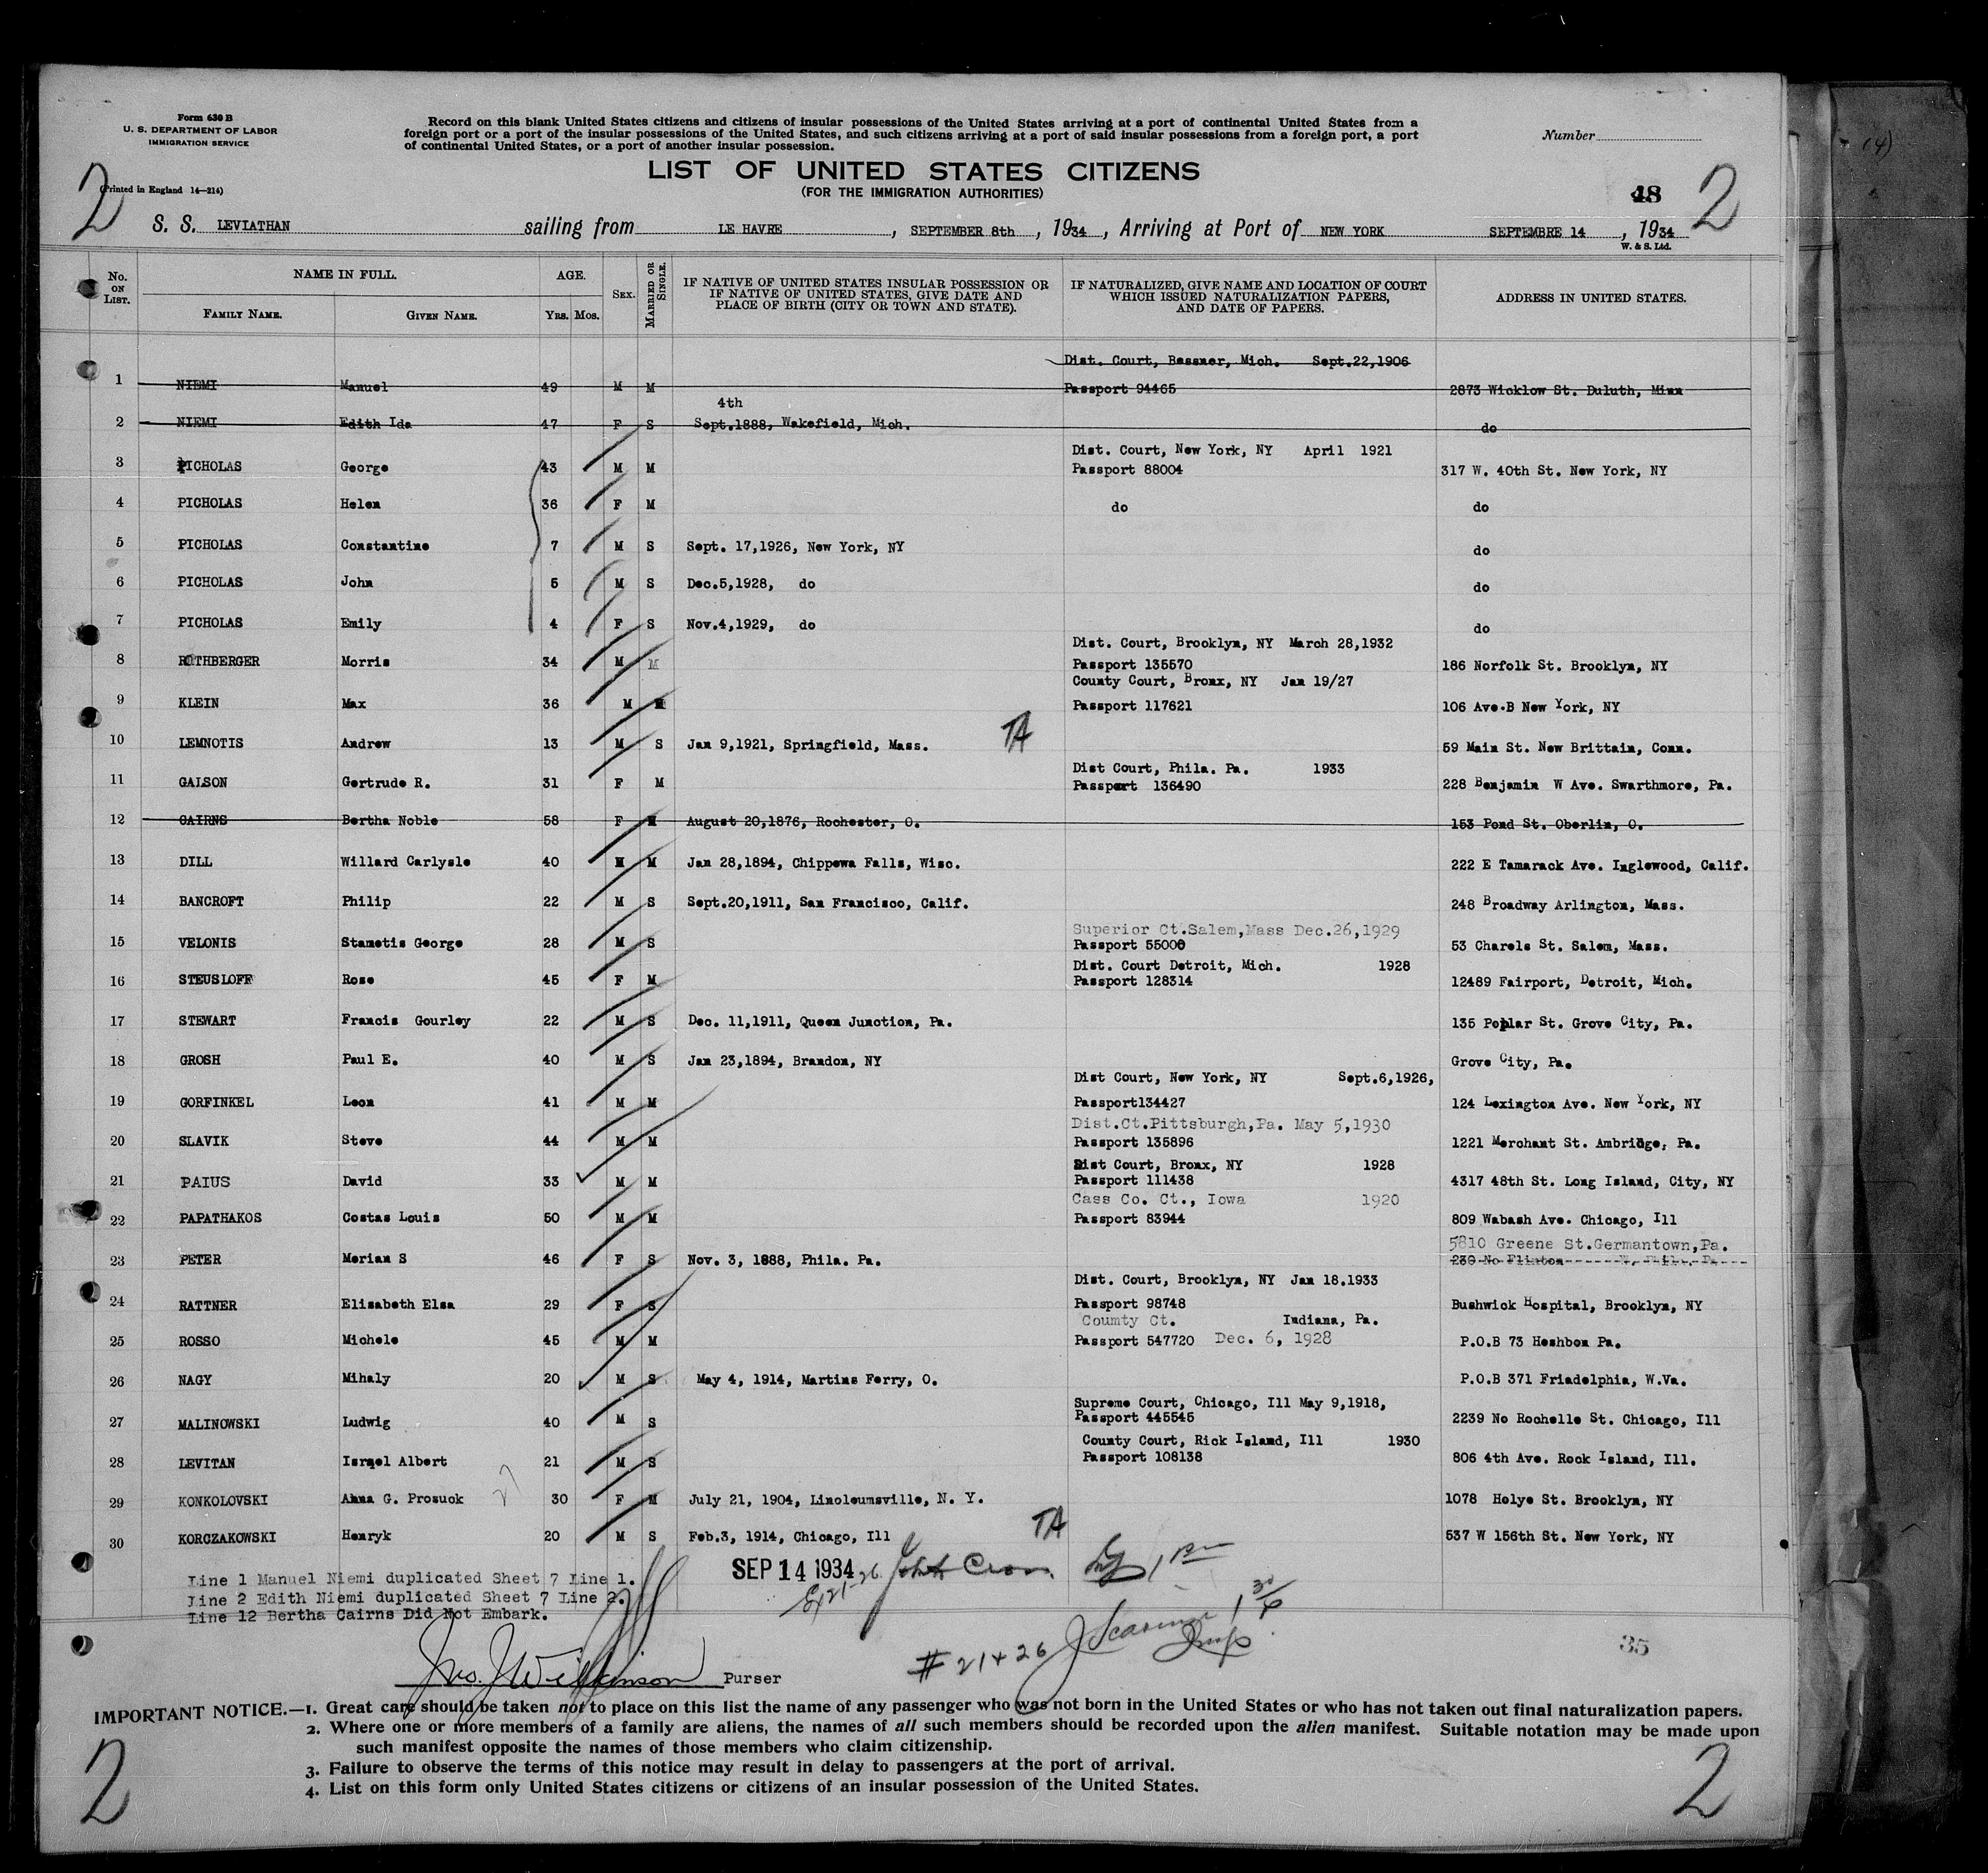 Form 630 B
U. S. DEPARTMENT OF LABOR
IMMIGRATION SERVICE
(Printed in England 14—214)
Record on this blank United States citizens and citizens of insular possessions of the United States arriving at a port of continental United States from a
foreign port or a port of the insular possessions of the United States, and such citizens arriving at a port of said insular possessions from a foreign port, a port
of continental United States, or a port of another insular possession.
Number
LIST OF UNITED STATES CITIZENS
(FOR THE IMMIGRATION AUTHORITIES)
2
48
2
S. S. LEVIATHAN sailing from LE HAVRE, SEPTEMBER 8th, 1934, Arriving at Port of NEW YORK SEPTEMBRE 14, 1934
W. & S. Ltd.
No. ON LIST. NAME IN FULL. AGE. SEX. MARRIED OR SINGLE. IF NATIVE OF UNITED STATES INSULAR POSSESSION OR IF NATIVE OF UNITED STATES, GIVE DATE AND PLACE OF BIRTH (CITY OR TOWN AND STATE). IF NATURALIZED, GIVE NAME AND LOCATION OF COURT WHICH ISSUED NATURALIZATION PAPERS, AND DATE OF PAPERS. ADDRESS IN UNITED STATES.
FAMILY NAME. GIVEN NAME. YRS. MOS.
Dist. Court, Bessner, Mich. Sept.22,1906
1 NIEMI Manuel 49 M M Passport 94465 2873 Wicklow St. Duluth, Minn
4th
2 NIEMI Edith Ida 47 F S Sept.1888, Wakefield, Mich. do
Dist. Court, New York, NY April 1921
3 PICHOLAS George 43 M M Passport 88004 317 W. 40th St. New York, NY
4 PICHOLAS Helen 36 F M do do
5 PICHOLAS Constantine 7 M S Sept. 17,1926, New York, NY do
6 PICHOLAS John 5 M S Dec.5,1928, do do
7 PICHOLAS Emily 4 F S Nov.4,1929, do do
Dist. Court, Brooklyn, NY March 28,1932
8 ROTHBERGER Morris 34 M M Passport 135570 186 Norfolk St. Brooklyn, NY
County Court, Bronx, NY Jan 19/27
9 KLEIN Max 36 M M Passport 117621 106 Ave.B New York, NY
TA
10 LEMNOTIS Andrew 13 M S Jan 9,1921, Springfield, Mass. 59 Main St. New Brittain, Conn.
Dist Court, Phila. Pa. 1933
11 GALSON Gertrude R. 31 F M Passport 136490 228 Benjamin W Ave. Swarthmore, Pa.
12 CAIRNS Bertha Noble 58 F M August 20,1876, Rochester, O. 153 Pond St. Oberlin, O.
13 DILL Willard Carlysle 40 M M Jan 28,1894, Chippewa Falls, Wisc. 222 E Tamarack Ave. Inglewood, Calif.
14 BANCROFT Philip 22 M S Sept.20,1911, San Francisco, Calif. 248 Broadway Arlington, Mass.
Superior Ct.Salem,Mass Dec.26,1929
15 VELONIS Stametis George 28 M S Passport 55000 53 Charels St. Salem, Mass.
Dist. Court Detroit, Mich. 1928
16 STEUSLOFF Rose 45 F M Passport 128314 12489 Fairport, Detroit, Mich.
17 STEWART Francis Gourley 22 M S Dec. 11,1911, Queen Junction, Pa. 135 Poplar St. Grove City, Pa.
18 GROSH Paul E. 40 M S Jan 23,1894, Brandon, NY Grove City, Pa.
Dist Court, New York, NY Sept.6,1926,
19 GORFINKEL Leon 41 M M Passport134427 124 Lexington Ave. New York, NY
Dist.Ct.Pittsburgh,Pa. May 5,1930
20 SLAVIK Steve 44 M M Passport 135896 1221 Merchant St. Ambridge, Pa.
Dist Court, Bronx, NY 1928
21 PAIUS David 33 M M Passport 111438 4317 48th St. Long Island, City, NY
Cass Co. Ct., Iowa 1920
22 PAPATHAKOS Costas Louis 50 M M Passport 83944 809 Wabash Ave. Chicago, Ill
5810 Greene St.Germantown,Pa.
23 PETER Merian S 46 F S Nov. 3, 1888, Phila. Pa. 230 No Flinton
Dist. Court, Brooklyn, NY Jan 18.1933
24 RATTNER Elisabeth Elsa 29 F S Passport 98748 Bushwick Hospital, Brooklyn, NY
County Ct. Indiana, Pa.
25 ROSSO Michele 45 M M Passport 547720 Dec. 6, 1928 P.O.B 73 Heshbon Pa.
26 NAGY Mihaly 20 M S May 4, 1914, Martins Ferry, O. P.O.B 371 Friadelphia, W.Va.
Supreme Court, Chicago, Ill May 9,1918,
27 MALINOWSKI Ludwig 40 M S Passport 445545 2239 No Rochelle St. Chicago, Ill
County Court, Rick Island, Ill 1930
28 LEVITAN Israel Albert 21 M S Passport 108138 806 4th Ave. Rock Island, Ill.
29 KONKOLOVSKI Anna G. Prosuck 30 F M July 21, 1904, Linoleumsville, N. Y. 1078 Holye St. Brooklyn, NY
TA
30 KORCZAKOWSKI Henryk 20 M S Feb.3, 1914, Chicago, Ill 537 W 156th St. New York, NY
SEP 14 1934
Line 1 Manuel Niemi duplicated Sheet 7 Line 1.
Line 2 Edith Niemi duplicated Sheet 7 Line 2.
Line 12 Bertha Cairns Did Not Embark.
# 21 + 26
35
Jno. J Wilkinson Purser
IMPORTANT NOTICE.—1. Great care should be taken not to place on this list the name of any passenger who was not born in the United States or who has not taken out final naturalization papers.
2. Where one or more members of a family are aliens, the names of all such members should be recorded upon the alien manifest. Suitable notation may be made upon
such manifest opposite the names of those members who claim citizenship.
3. Failure to observe the terms of this notice may result in delay to passengers at the port of arrival.
4. List on this form only United States citizens or citizens of an insular possession of the United States.
2
2